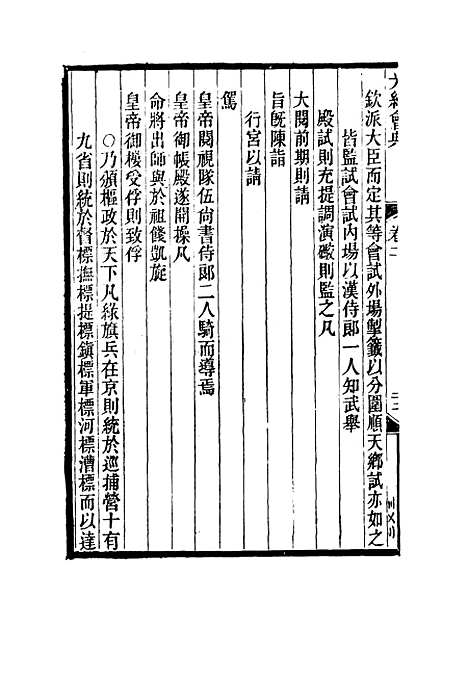 大清會典
卷
欽派大臣而定其等會試外場掣籤以分圍順天鄉試亦如之
皆監試會試內場以漢侍郎一人知武舉
殿試則充提調演礮則監之凡
大閱前期則請
旨旣陳請
行宮以請
駕
皇帝閱視隊伍尚書侍郎二人騎而導焉
皇帝御帳殿遂開操凡
命將出師與於祖餞凱旋
皇帝御樓受俘則致俘
○乃頒樞政於天下凡綠旗兵在京則統於巡捕營十有
九省則統於督標撫標提標鎮標軍標河標漕標而以達